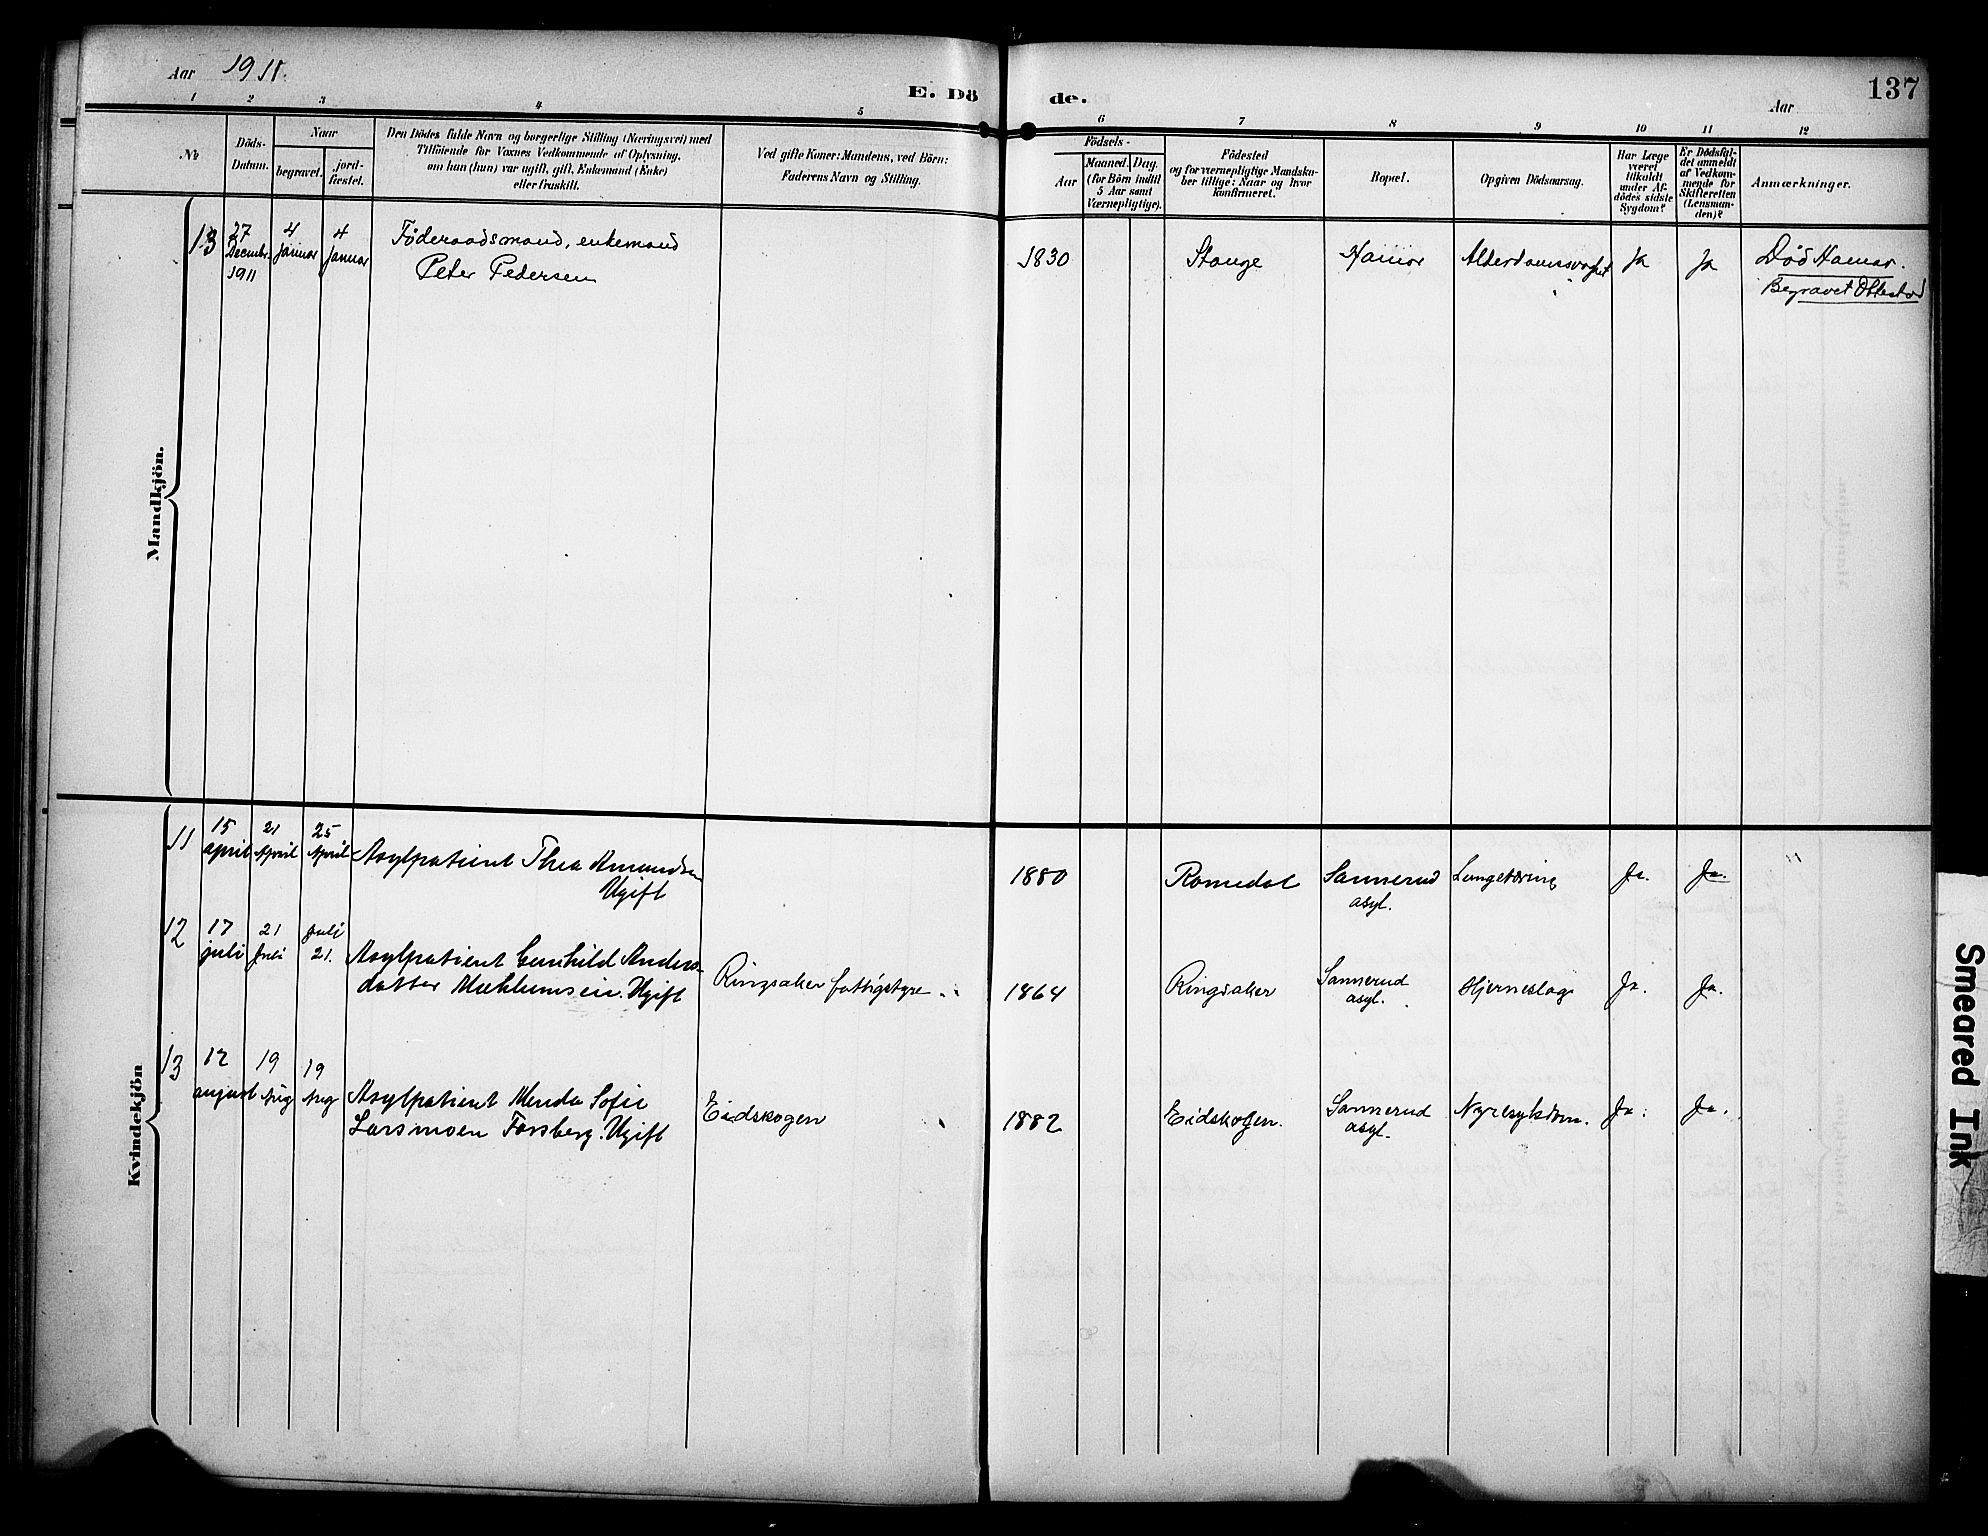 Aar 1911.
E. Dö
de.
Aar
137
1 2 3 4 5
6 7 8 9 10 11 12
No
Döds-
Datum.
Naar
begravet.
jord-
fæstet.
Den Dödes fulde Navn og borgerlige Stilling (Næringsvei) med
Tilföiende for Voxnes Vedkommende af Oplysning,
om han (hun) var ugift, gift, Enkemand (Enke)
eller fraskilt.
Ved gifte Koner: Mandens, ved Börn:
Faderens Navn og Stilling.
Födsels-
Aar
Maaned. Dag.
(for Börn indtil
5 Aar samt
Værnepligtige).
Födested
og for værnepligtige Mandskaber
tillige: Naar og hvor
konfirmeret.
Bopæl.
Opgiven Dödsaarsag.
Har Læge
været
tilkaldt
under Af-
dödes sidste
Sygdom?
Er Dödsfal-
det anmeldt
af Vedkom-
mende for
Skifteretten
(Lensman-
den)?
Anmærkninger.
Mandkjön.
13
27
Decembr.
1911
4
Januar
4
Januar
Föderaadsmand, enkemand
Peter Pedersen
1830
Stange
Hamar
Alderdomssvaghet
Ja
Ja
Död Hamar.
Begravet Ottestad
Kvindekjön
11
15
april
21
April
25
April
Asylpatient Thea Amundsen
Ugift
1880
Romedal
Sannerud
asyl.
Lungetæring
Ja.
Ja.
12
17
juli
21
Juli
Juli
21.
Asylpatient Gunhild Anders-
datter Mæhlumseie. Ugift
Ringsaker fattigstyre
1864
Ringsaker
Sannerud
asyl.
Hjerneslag
Ja.
Ja.
13
12
august
19
Aug
19
Aug
Asylpatient Menda Sofie
Larsmoen Forsberg. Ugift
Eidskogen
1882
Eidskogen.
Sannerud
asyl.
Nyresykdom.
Ja.
Ja.
Smeared Ink